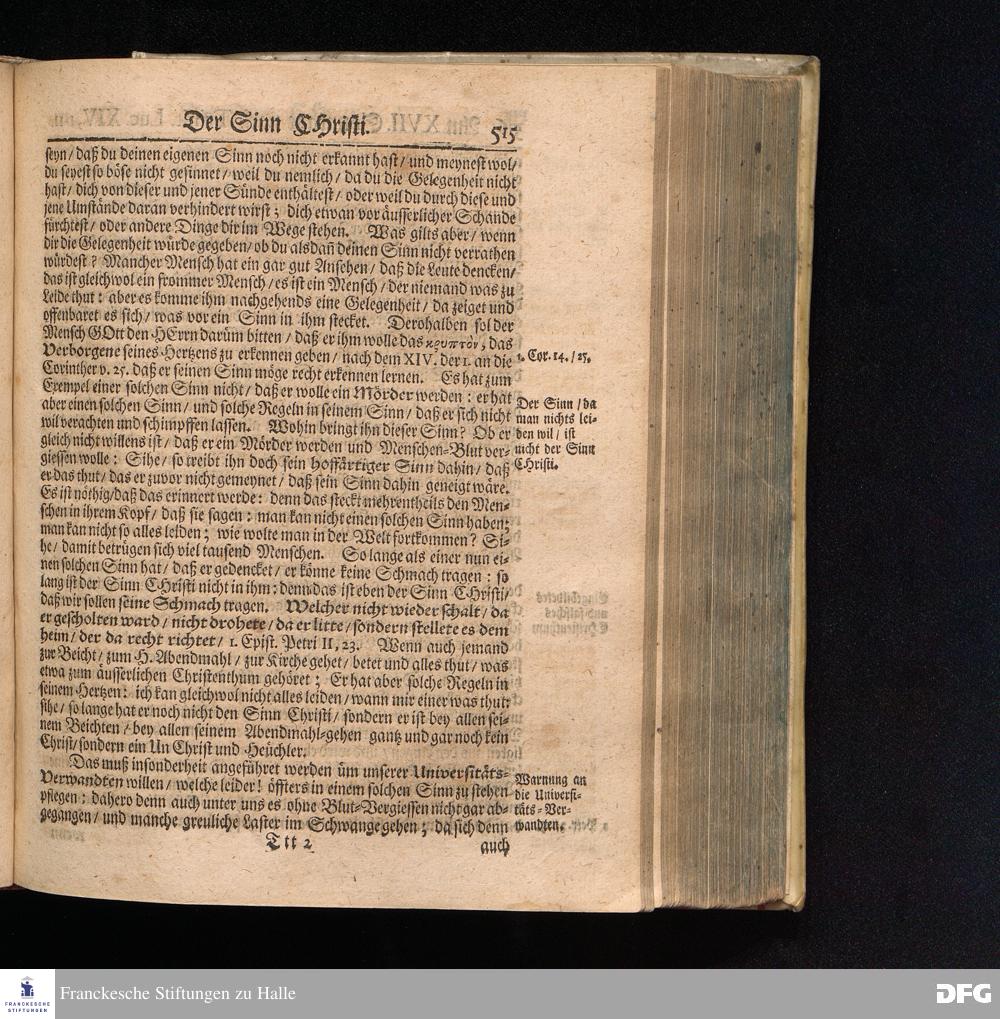 Der Sinn CHristi. 515
seyn / daß du deinen eigenen Sinn noch nicht erkannt hast / und meynest wol /
du seyest so böse nicht gesinnet / weil du nemlich / da du die Gelegenheit nicht
hast / dich von dieser und jener Sünde enthältest / oder weil du durch diese und
jene Umstände daran verhindert wirst ; dich etwan vor äusserlicher Schande
fürchtest / oder andere Dinge dir im Wege stehen. Was gilts aber / wenn
dir die Gelegenheit würde gegeben / ob du alsdañ deinen Sinn nicht verrathen
würdest ? Mancher Mensch hat ein gar gut Ansehen / daß die Leute dencken /
das ist gleichwol ein frommer Mensch / es ist ein Mensch / der niemand was zu
Leide thut : aber es komme ihm nachgehends eine Gelegenheit / da zeiget und
offenbaret es sich / was vor ein Sinn in ihm stecket. Derohalben sol der
Mensch GOtt den HErrn darüm bitten / daß er ihm wolle das κρυπτὸν, das
Verborgene seines Hertzens zu erkennen geben / nach dem XIV. der 1. an die
Corinther v. 25. daß er seinen Sinn möge recht erkennen lernen. Es hat zum
Exempel einer solchen Sinn nicht / daß er wolle ein Mörder werden : er hat
aber einen solchen Sinn / und solche Regeln in seinem Sinn / daß er sich nicht
wil verachten und schimpffen lassen. Wohin bringt ihn dieser Sinn ? Ob er
gleich nicht willens ist / daß er ein Mörder werden und Menschen-Blut ver-
giessen wolle : Sihe / so treibt ihn doch sein hoffärtiger Sinn dahin / daß
er das thut / das er zuvor nicht gemeynet / daß sein Sinn dahin geneigt wäre.
Es ist nöthig / daß das erinnert werde : denn das steckt mehrentheils den Men-
schen in ihrem Kopf / daß sie sagen : man kan nicht einen solchen Sinn haben ;
man kan nicht so alles leiden ; wie wolte man in der Welt fortkommen ? Si-
he / damit betrügen sich viel tausend Menschen. So lange als einer nun ei-
nen solchen Sinn hat / daß er gedencket / er könne keine Schmach tragen : so
lang ist der Sinn CHristi nicht in ihm : denn das ist eben der Sinn CHristi /
daß wir sollen seine Schmach tragen. Welcher nicht wieder schalt / da
er gescholten ward / nicht drohete / da er litte / sondern stellete es dem
heim / der da recht richtet / 1. Epist. Petri II, 23. Wenn auch jemand
zur Beicht / zum H. Abendmahl / zur Kirche gehet / betet und alles thut / was
etwa zum äusserlichen Christenthum gehöret ; Er hat aber solche Regeln in
seinem Hertzen : ich kan gleichwol nicht alles leiden / wann mir einer was thut:
sihe / so lange hat er noch nicht den Sinn Christi / sondern er ist bey allen sei-
nem Beichten / bey allen seinem Abendmahl-gehen gantz und gar noch kein
Christ / sondern ein Un Christ und Heüchler.
Das muß insonderheit angeführet werden üm unserer Universitäts-
Verwandten willen / welche leider ! öffters in einem solchen Sinn zu stehen
pflegen : dahero denn auch unter uns es ohne Blut-Vergiessen nicht gar ab-
gegangen / und manche greuliche Laster im Schwange gehen ; da sich denn
Ttt 2 auch
1. Cor. 14. / 25.
Der Sinn / da
man nichts lei-
den wil / ist
nicht der Sinn
CHristi.
Warnung an
die Universi-
täts-Ver-
wandten.
FRANCKESCHE
STIFTUNGEN
Franckesche Stiftungen zu Halle
DFG